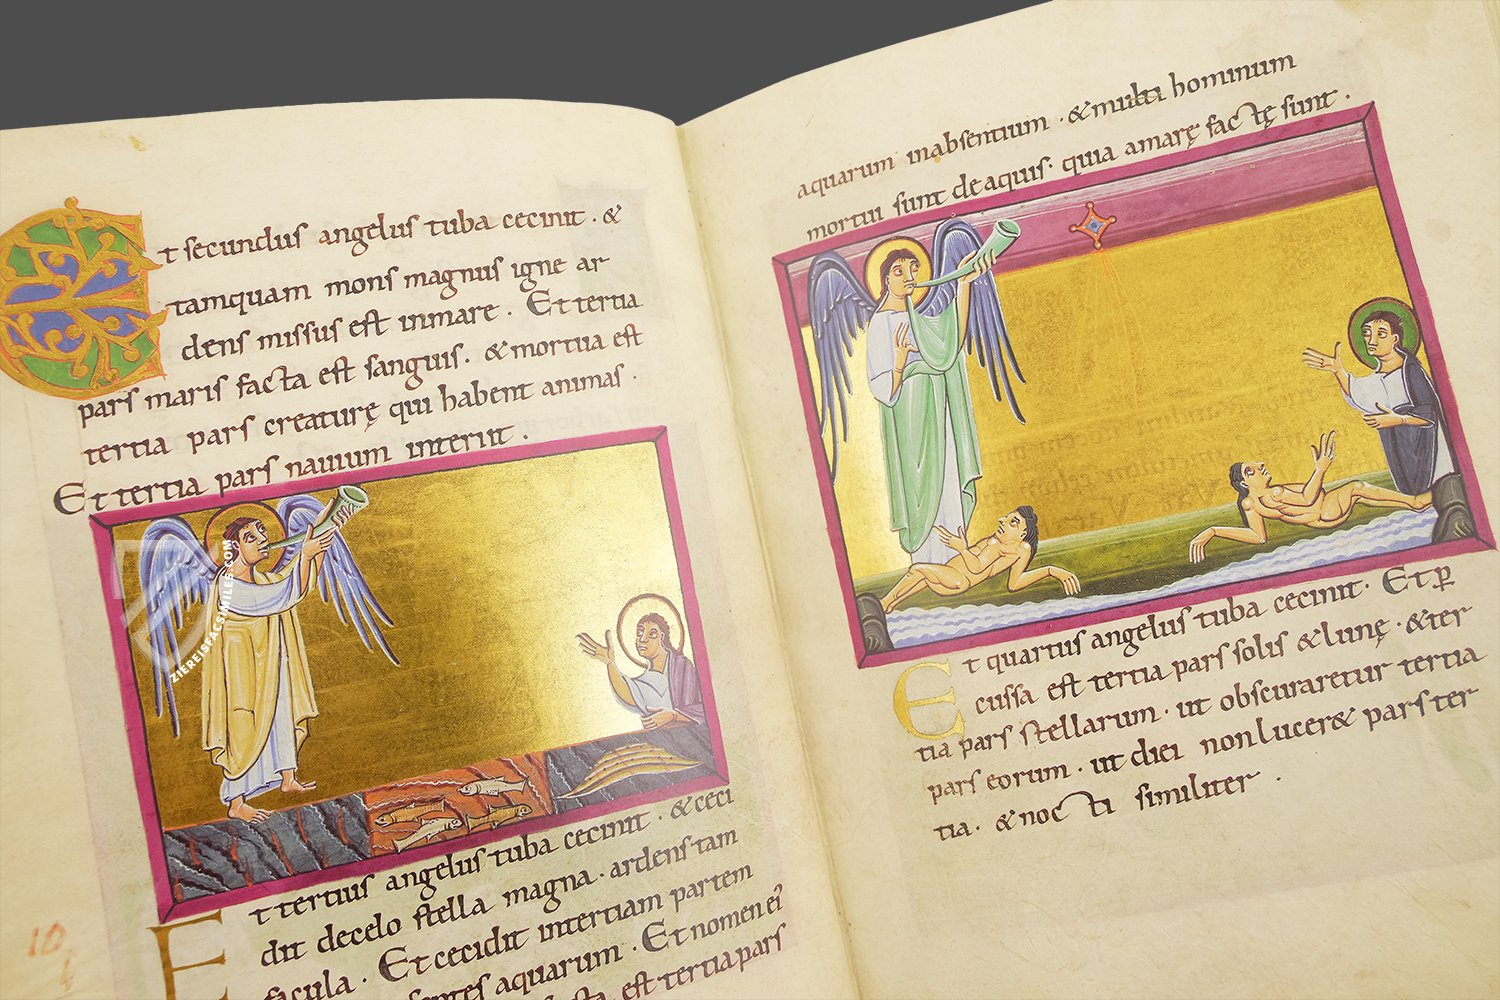 Et secundus angelus tuba cecinit · &
tamquam mons magnus igne ar
dens missus est inmare . Et tertia
pars maris facta est sanguis . & mortua est
tertia pars creaturę qui habent animas .
Et tertia pars nauium interiit .
Et tertius angelus tuba cecinit . & ceci
dit decelo stella magna · ardens tam
facula . Et cecidit intertiam partem
aquarum . Et nomen ei
est tertia pars
aquarum inabsentium . & multi hominum
mortui sunt deaquis . quia amarę factę sunt .
Et quartus angelus tuba cecinit . Et p
cussa est tertia pars solis & lunę . & ter
tia pars stellarum . ut obscuraretur tertia
pars eorum . ut diei non lucer& pars ter
tia . & nocti similiter .
10
ZIEREISFACSIMILES.COM